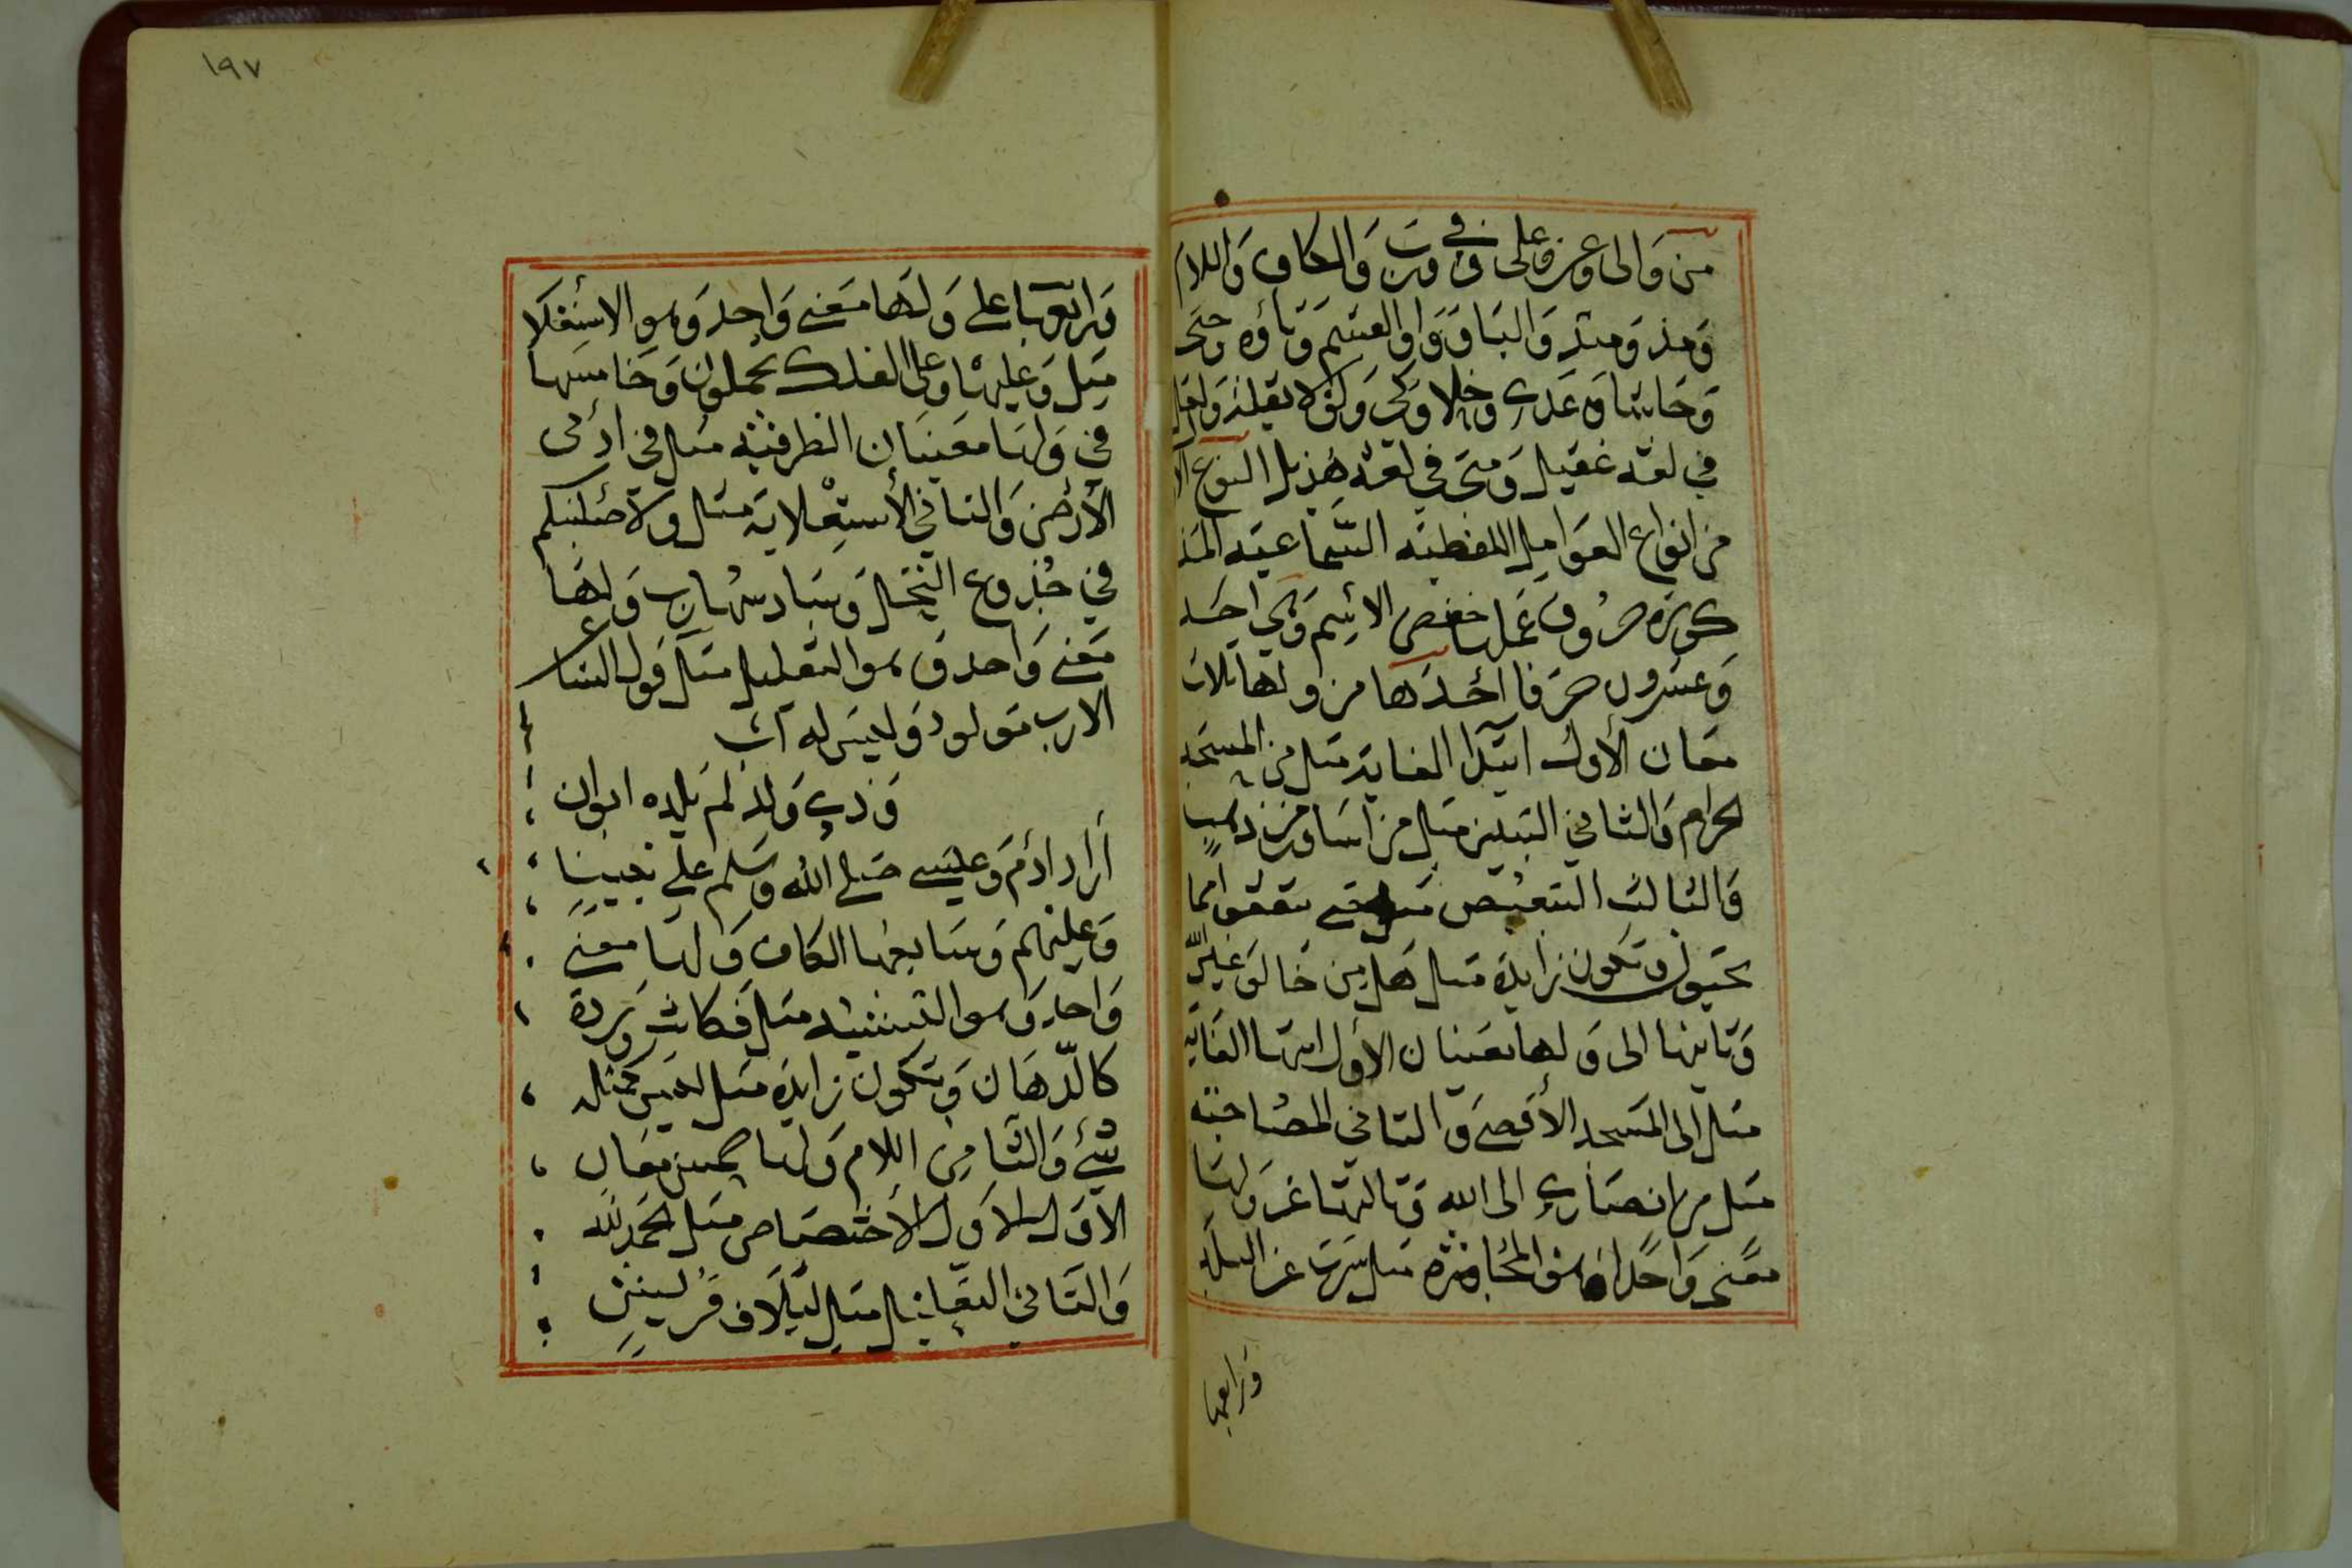 من والى وعن وعلى وفي ورب والكاف واللام
ومذ ومنذ والبا وواو القسم وتاؤه وحتى
وحاشا وعدى وخلا وكى ولولا
في لغة عقيل ومتى في لغة هذيل النوع
من انواع العوامل اللفظية السماعية
حروف عملها خفض الاسم وهي احد
وعشرون حرفا احدها من ولها ثلاث
معان الأول ابتدا الغاية مثل من المسجد
الحرام والثاني التبيين مثل من اساور من ذهب
والثالث التبعيض مثل حتى تنفقوا مما
تحبون وتكون زايدة مثل هل من خالق غير
وثانيها الى ولها معنيان الأول انتها الغاية
مثل الى المسجد الأقصى والثاني المصاحبة
مثل من انصاري الى الله وثالثها عن ولها
معنى واحدا وهو المجاوزة مثل سرت عن البلد
ورابعها
١٩٧
ورابعها على ولها معنى واحد وهو الاستعلا
مثل وعليها وعلى الفلك تحملون وخامسها
في ولها معنيان الظرفية مثل في ادنى
الأرض والثاني الأستعلاية مثل ولأصلبنكم
في جذوع النخل وسادسها رب ولها
معنى واحد وهو التقليل مثل قول الشاعر
الا رب مولود وليس له اب
وذي ولد لم يلده ابوان
أراد ادم وعيسى صلى الله وسلم على نبينا
وعليهم وسابعها الكاف ولها معنى
واحد وهو التشبيه مثل فكانت وردة
كالدهان وتكون زايدة مثل ليس كمثله
شيء والثامن اللام ولها معان
الاول الاول الأختصاص مثل الحمد لله
والثاني التعليل مثل ليلاف قريش